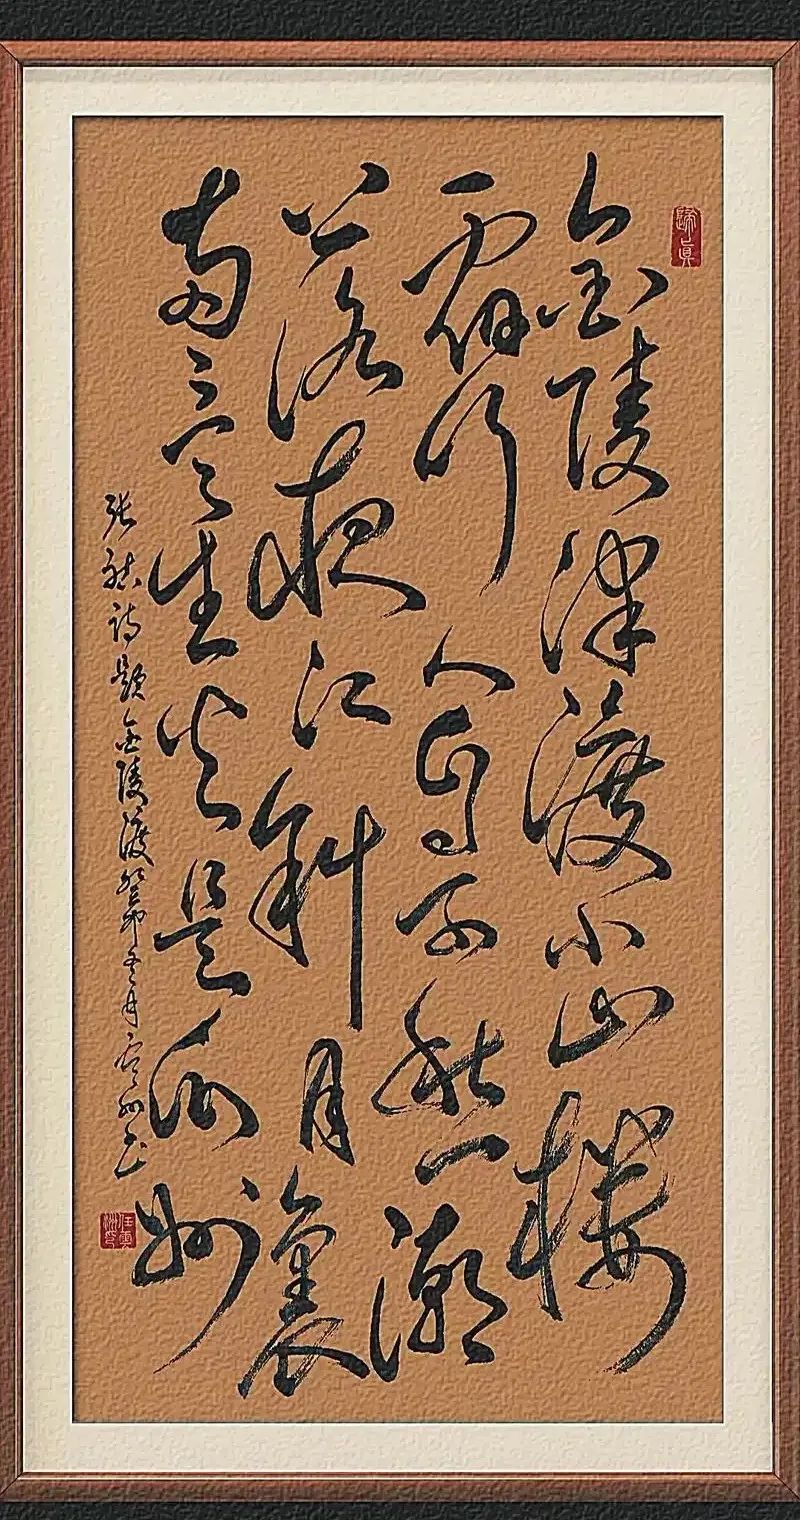 歸真
金陵津渡小山楼
一宿行人自可愁潮
落夜江斜月裏
两三星火是瓜州
张祜诗题金陵渡癸卯冬月云洲书